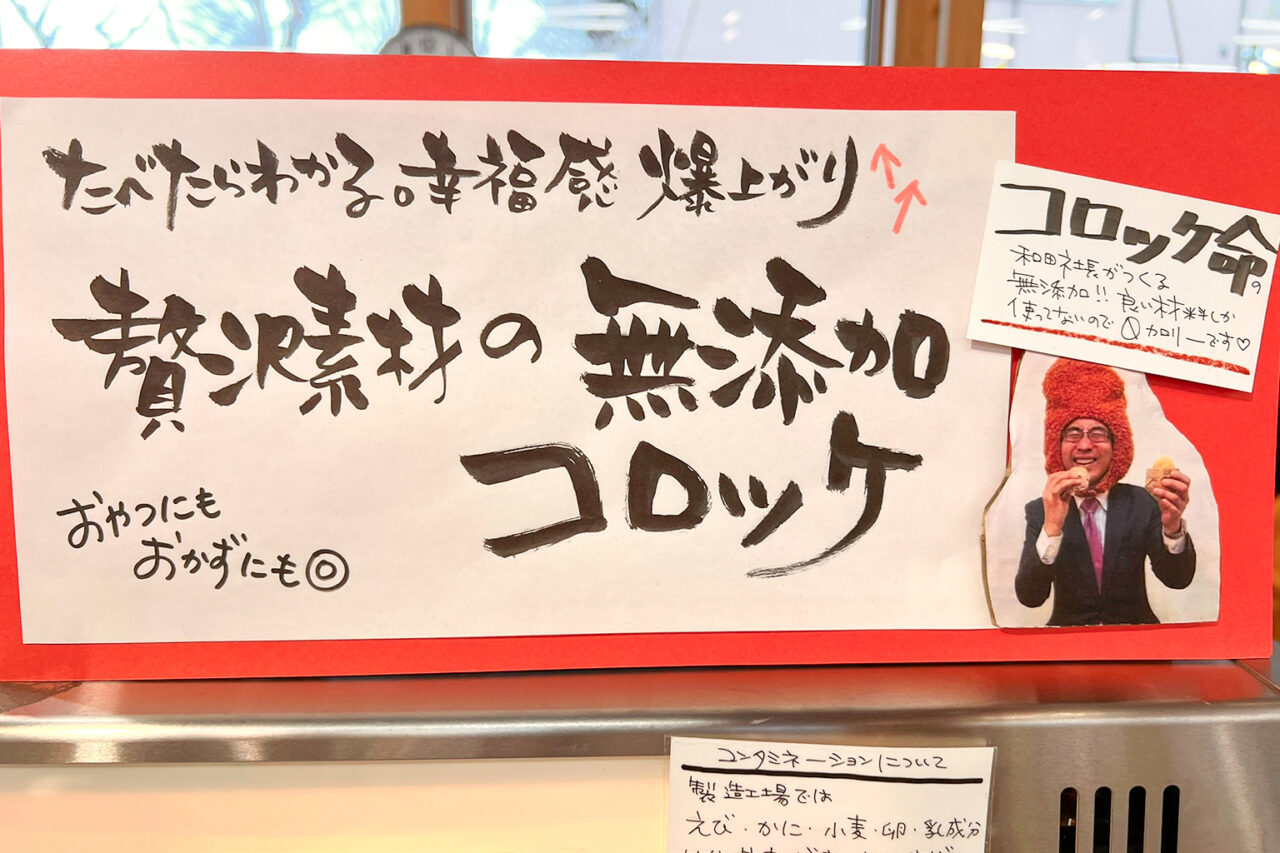 たべたらわかる。幸福感 爆上がり↑↑
贅沢素材の無添加
コロッケ
おやつにも
おかずにも◎
コロッケ命の
和田社長がつくる
無添加!! 良い材料しか
使ってないので0カロリーです♡
コンタミネーションについて
製造工場では
えび・かに・小麦・卵・乳成分